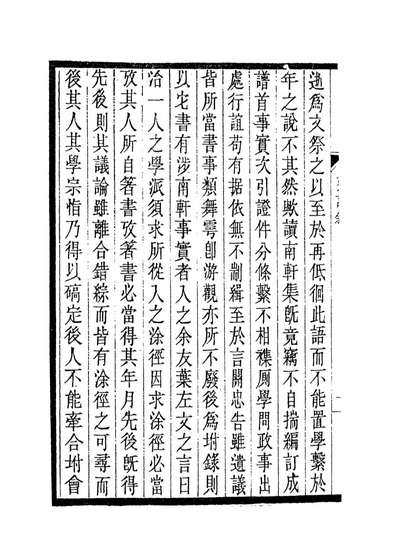 遜爲文祭之以至於再低徊此語而不能置學繫於
年之說不其然歟讀南軒集旣竟竊不自揣編訂成
譜首事實次引證件分條繫不相襍厠學問政事出
處行誼苟有据依無不剬緝至於言關忠告雖遺議
皆所當書事類舞雩卽游觀亦所不廢後爲坿錄則
以宅書有涉南軒事實者入之余友葉左文之言曰
治一人之學派須求所從入之涂徑因求涂徑必當
攷其人所自箸書攷箸書必當得其年月先後旣得
先後則其議論雖離合錯綜而皆有涂徑之可尋而
後其人其學宗恉乃得以碻定後人不能牽合坿會